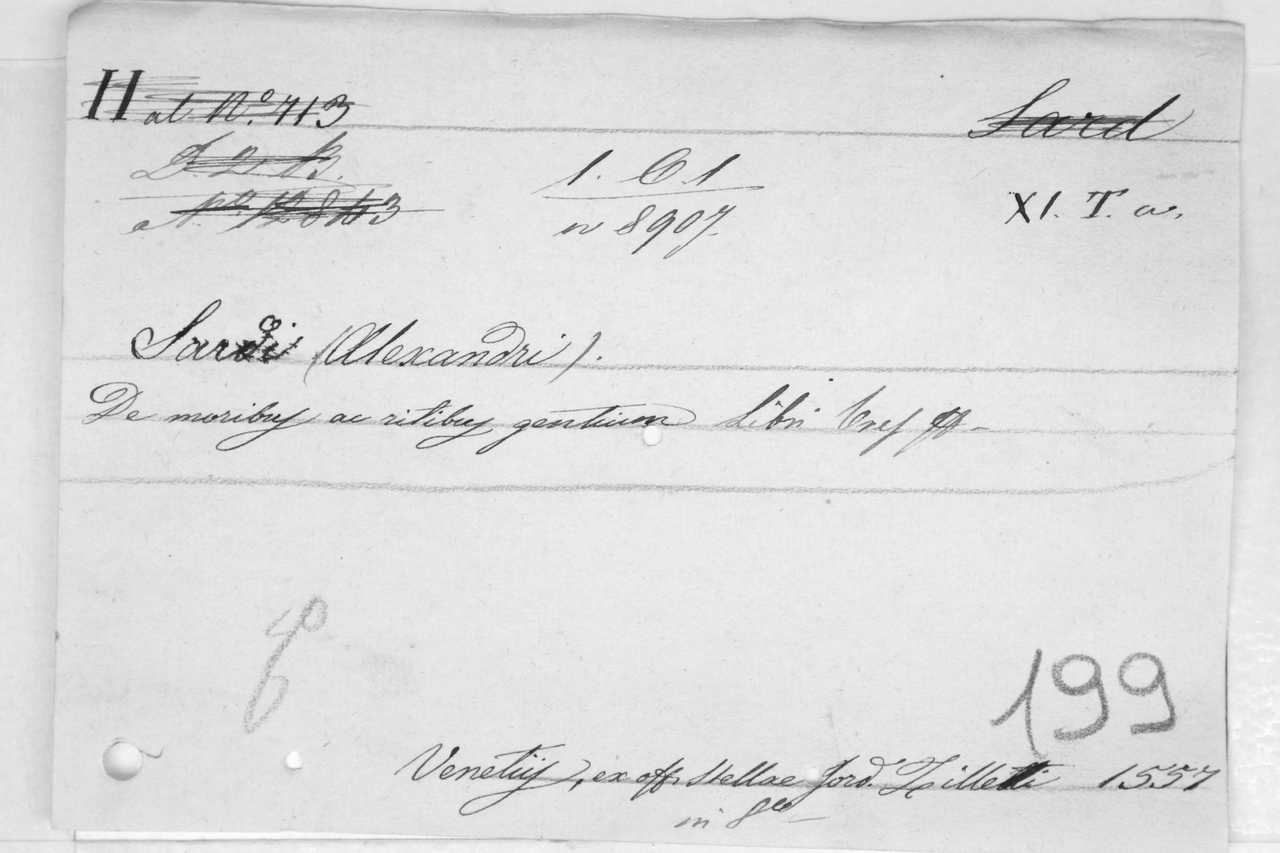 H at N.º 413
Sard
1. C 1
n 8907.
XI. T. a.
Sardi (Alexandri).
De moribus ac ritibus gentium Libri tres
199
Venetijs, ex off. Stellae Jord. Zilletti 1557
in 8vo